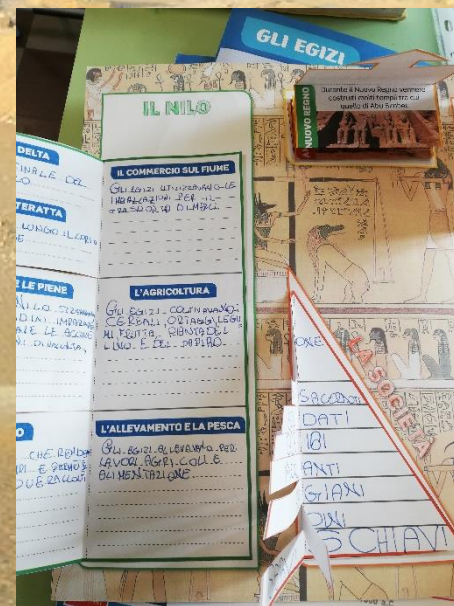 GLI EGIZI
NUOVO REGNO
Durante il Nuovo Regno vennero
costruiti molti templi tra cui
quello di Abu Simbel
IL NILO
DELTA
DEL
LUNGO IL
E LE PIENE
IL COMMERCIO SUL FIUME
GLI EGIZI UTILIZZAVANO LE
IMBARCAZIONI PER IL
TRASPORTO DI MERCI
L'AGRICOLTURA
GLI EGIZI COLTIVAVANO
CEREALI, ORTAGGI, LEGU
MI FRUTTA, PIANTA DEL
LINO E DEL PAPIRO.
L'ALLEVAMENTO E LA PESCA
GLI EGIZI ALLEVAVANO PER
LAVORI AGRICOLI E
ALIMENTAZIONE
CHE RENDE
LA SOCIETÀ
ONE
SACERDOTI
DATI
IBI
ANTI
GIANI
DINI
SCHIAVI